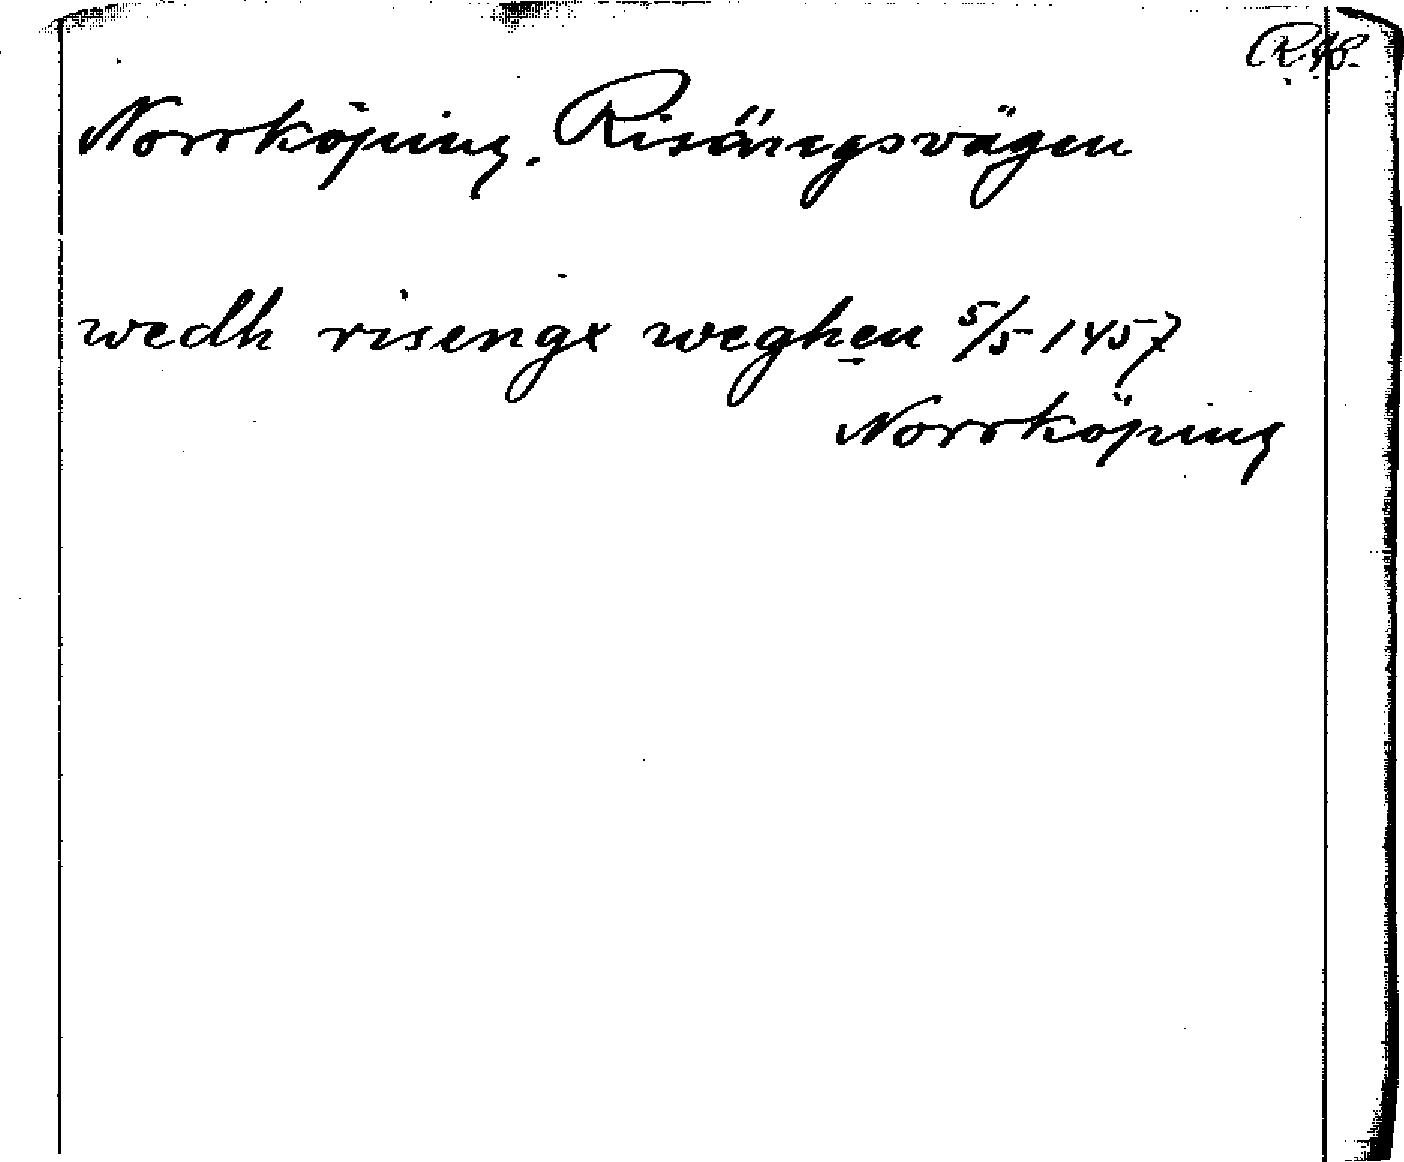 R.48.
Norrköping. Risängsvägen
wedh risengx weghen 5/5 1457
Norrköping